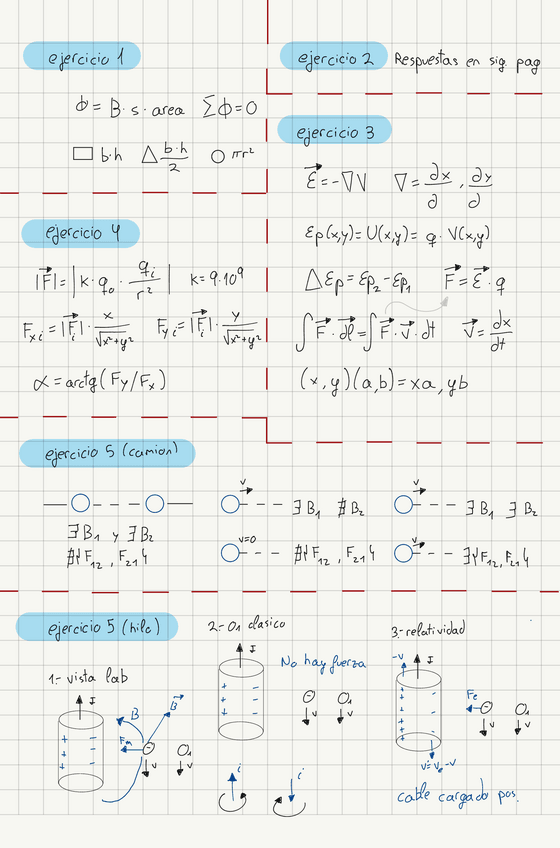 ejercicio 1
ϕ = B · s · area   Σϕ = 0
□ b·h   △ b·h/2   ○ πr²
ejercicio 2   Respuestas en sig. pag
ejercicio 3
E⃗ = -∇V   ∇ = ∂x/∂ , ∂y/∂
Ep(x,y) = U(x,y) = q · V(x,y)
△Ep = Ep₂ - Ep₁   F⃗ = E⃗ · q
∫F⃗ · dl⃗ = ∫F⃗ · v⃗ · dt   v⃗ = dx/dt
(x, y)(a,b) = xa, yb
ejercicio 4
|F⃗| = |k · q₀ · qᵢ/r²|   k = 9·10⁹
Fxᵢ = |F⃗ᵢ| · x/√x²+y²   Fyᵢ = |F⃗ᵢ| · y/√x²+y²
α = arctg(Fy/Fx)
ejercicio 5 (camion)
∃B₁ y ∃B₂
∄{F₁₂, F₂₁}
v
∃B₁ ∄B₂
v=0
∄{F₁₂, F₂₁}
v
∃B₁ ∃B₂
v
∃{F₁₂, F₂₁}
ejercicio 5 (hilo)
1.- vista lab
I
+ -
+ -
+ -
B
B⃗
Fm
- q₁
v v
2.- q₁ clasico
I
+ -
+ -
+ -
No hay fuerza
- q₁
v v
i i
3.- relatividad
-v
I
+ -
+
+ -
+
+
+ -
v' = vₑ - v
Fe
- q₁
v v
cable cargado pos.